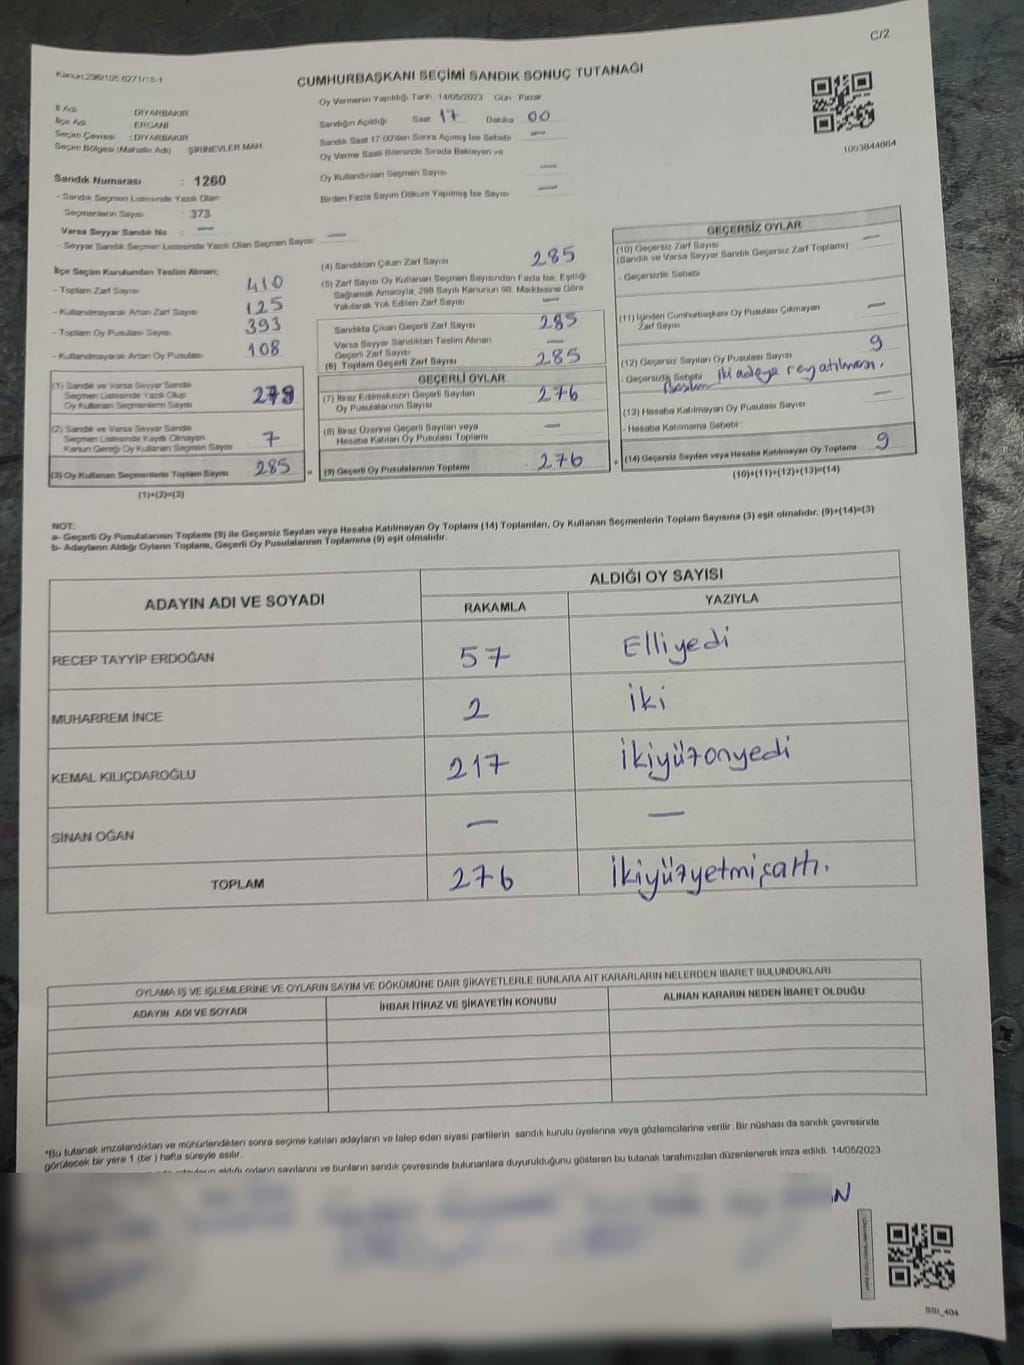 C/2
Kanun:298/195 6271/18-1
CUMHURBAŞKANI SEÇİMİ SANDIK SONUÇ TUTANAĞI
İl Adı : DİYARBAKIR
İlçe Adı : ERGANİ
Seçim Çevresi : DİYARBAKIR
Seçim Bölgesi (Mahalle Adı) ŞİRİNEVLER MAH.
Oy Vermenin Yapıldığı Tarih 14/05/2023 Gün : Pazar
Sandığın Açıldığı Saat 17 Dakika 00
Sandık Saat 17:00'den Sonra Açılmış İse Sebebi —
Oy Verme Saati Bitiminde Sırada Bekleyen ve
Oy Kullandırılan Seçmen Sayısı —
Birden Fazla Sayım Döküm Yapılmış İse Sayısı —
1093844664
Sandık Numarası : 1260
- Sandık Seçmen Listesinde Yazılı Olan
Seçmenlerin Sayısı : 373
Varsa Seyyar Sandık No : —
- Seyyar Sandık Seçmen Listesinde Yazılı Olan Seçmen Sayısı —
İlçe Seçim Kurulundan Teslim Alınan;
- Toplam Zarf Sayısı 410
- Kullanılmayarak Artan Zarf Sayısı 125
- Toplam Oy Pusulası Sayısı 393
- Kullanılmayarak Artan Oy Pusulası 108
(1) Sandık ve Varsa Seyyar Sandık
Seçmen Listesinde Yazılı Olup
Oy Kullanan Seçmenlerin Sayısı
(2) Sandık ve Varsa Seyyar Sandık
Seçmen Listesinde Kayıtlı Olmayan
Kanun Gereği Oy Kullanan Seçmen Sayısı 7
(3) Oy Kullanan Seçmenlerin Toplam Sayısı 285
(1)+(2)=(3)
(4) Sandıktan Çıkan Zarf Sayısı 285
(5) Zarf Sayısı Oy Kullanan Seçmen Sayısından Fazla İse, Eşitliği
Sağlamak Amacıyla, 298 Sayılı Kanunun 98. Maddesine Göre
Yakılarak Yok Edilen Zarf Sayısı —
Sandıkta Çıkan Geçerli Zarf Sayısı 285
Varsa Seyyar Sandıktan Teslim Alınan
Geçerli Zarf Sayısı —
(6) Toplam Geçerli Zarf Sayısı 285
GEÇERLİ OYLAR
(7) İtiraz Edilmeksizin Geçerli Sayılan
Oy Pusulalarının Sayısı 276
(8) İtiraz Üzerine Geçerli Sayılan veya
Hesaba Katılan Oy Pusulası Toplamı —
= (9) Geçerli Oy Pusulalarının Toplamı 276
GEÇERSİZ OYLAR
(10) Geçersiz Zarf Sayısı —
(Sandık ve Varsa Seyyar Sandık Geçersiz Zarf Toplamı)
- Geçersizlik Sebebi
(11) İçinden Cumhurbaşkanı Oy Pusulası Çıkmayan
Zarf Sayısı —
(12) Geçersiz Sayılan Oy Pusulası Sayısı 9
- Geçersizlik Sebebi İki adaya rey atılması.
(13) Hesaba Katılmayan Oy Pusulası Sayısı —
- Hesaba Katılmama Sebebi :
+ (14) Geçersiz Sayılan veya Hesaba Katılmayan Oy Toplamı 9
(10)+(11)+(12)+(13)=(14)
NOT:
a- Geçerli Oy Pusulalarının Toplamı (9) ile Geçersiz Sayılan veya Hesaba Katılmayan Oy Toplamı (14) Toplamları, Oy Kullanan Seçmenlerin Toplam Sayısına (3) eşit olmalıdır. (9)+(14)=(3)
b- Adayların Aldığı Oyların Toplamı, Geçerli Oy Pusulalarının Toplamına (9) eşit olmalıdır.
ADAYIN ADI VE SOYADI ALDIĞI OY SAYISI
RAKAMLA YAZIYLA
RECEP TAYYİP ERDOĞAN 57 Elliyedi
MUHARREM İNCE 2 İki
KEMAL KILIÇDAROĞLU 217 İkiyüzonyedi
SİNAN OĞAN — —
TOPLAM 276 İkiyüzyetmişaltı.
OYLAMA İŞ VE İŞLEMLERİNE VE OYLARIN SAYIM VE DÖKÜMÜNE DAİR ŞİKAYETLERLE BUNLARA AİT KARARLARIN NELERDEN İBARET BULUNDUKLARI
ADAYIN ADI VE SOYADI İHBAR İTİRAZ VE ŞİKAYETİN KONUSU ALINAN KARARIN NEDEN İBARET OLDUĞU
*Bu tutanak imzalandıktan ve mühürlendikten sonra seçime katılan adayların ve talep eden siyasi partilerin sandık kurulu üyelerine veya gözlemcilerine verilir. Bir nüshası da sandık çevresinde
görülecek bir yere 1 (bir) hafta süreyle asılır.
aldığı oyların sayılarını ve bunların sandık çevresinde bulunanlara duyurulduğunu gösteren bu tutanak tarafımızdan düzenlenerek imza edildi. 14/05/2023
SSI_404